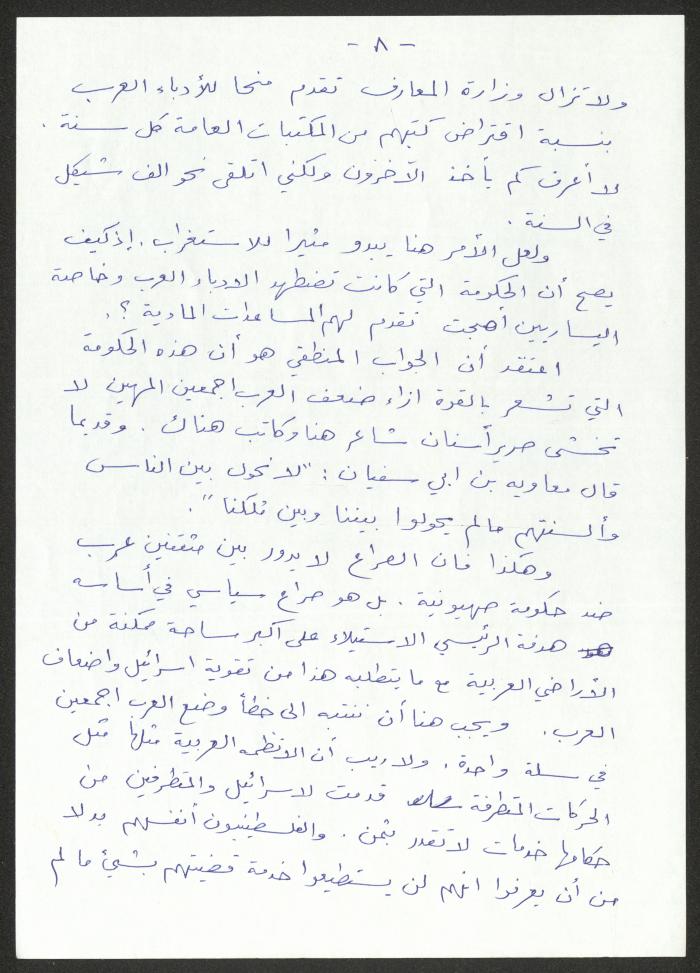 - ٨ -
ولا تزال وزارة المعارف تقدم منحا للأدباء العرب
بنسبة اقتراض كتبهم من المكتبات العامة كل سنة .
لا أعرف كم يأخذ الآخرون ولكني اتلقى نحو الف شيكل
في السنة .
ولعل الأمر هنا يبدو مثيرا للاستغراب . إذ كيف
يصح أن الحكومة التي كانت تضطهد الادباء العرب وخاصة
اليساريين أصبحت تقدم لهم المساعدات المادية ؟ .
اعتقد أن الجواب المنطقي هو أن هذه الحكومة
التي تشعر بالقوة ازاء ضعف العرب اجمعين المهين لا
تخشى صرير أسنان شاعر هنا وكاتب هناك . وقديما
قال معاويه بن ابي سفيان : " لا نحول بين الناس
وألسنتهم مالم يحولوا بيننا وبين مُلكنا " .
وهكذا فان الصراع لا يدور بين مثقفين عرب
ضد حكومة صهيونية . بل هو صراع سياسي في أساسه
هدفه الرئيسي الاستيلاء على اكبر ساحة ممكنة من
الأراضي العربية مع ما يتطلبه هذا من تقوية اسرائيل واضعاف
العرب . ويجب هنا أن ننتبه الى خطأ وضع العرب اجمعين
في سلة واحدة . ولا ريب أن الانظمه العربية مثلها مثل
الحركات المتطرفة قدمت لاسرائيل والمتطرفين من
حكامها خدمات لا تقدر بثمن . والفلسطينيون أنفسهم بدلا
من أن يعرفوا انهم لن يستطيعوا خدمة قضيتهم بشيئ ما لم